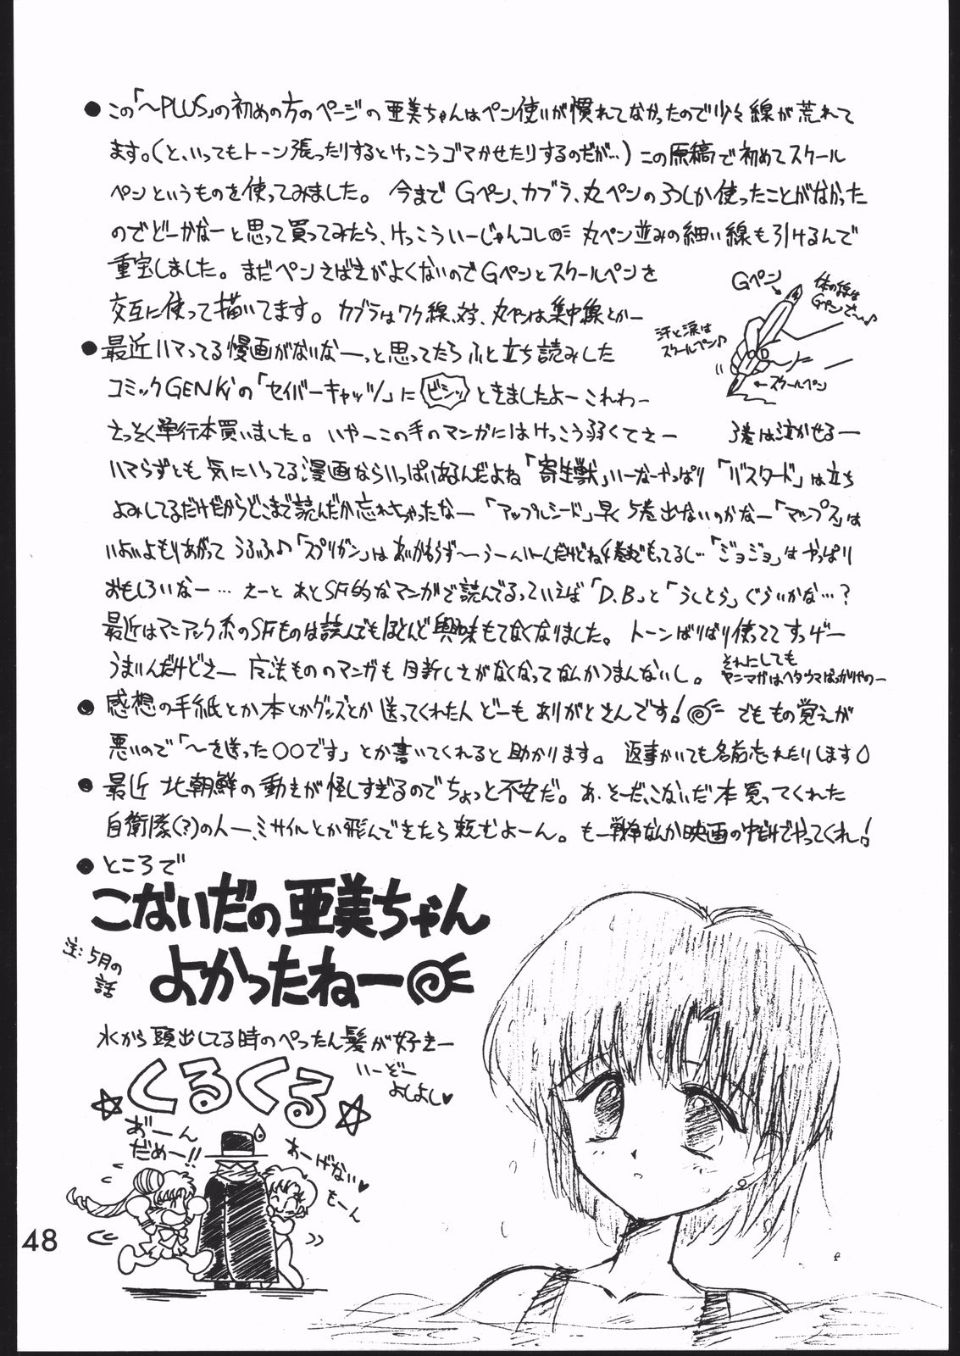 ●この「〜PLUS」の初めの方のページの亜美ちゃんはペン使いが慣れてなかったので少々線が荒れて
ます。(と、いってもトーン張ったりするとけっこうゴマかせたりするのだが…)この原稿で初めてスクール
ペンというものを使ってみました。今までGペン、カブラ、丸ペンの3つしか使ったことがなかった
のでどーかなーと思って買ってみたら、けっこういーじゃんコレ 丸ペン並みの細い線も引けるんで
重宝しました。まだペンさばきがよくないのでGペンとスクールペンを
交互に使って描いてます。カブラはワク線、対、丸ペンは集中線とかー
Gペン
体の線は
Gペンさー♪
汗と涙は
スクールペン♪
←スクールペン
●最近ハマってる漫画がないなーっと思ってたらふと立ち読みした
コミックGENKiの「セイバーキャッツ」に ビシッ ときましたよー これわー
さっそく単行本買いました。いやーこの手のマンガにはけっこう弱くてさー 3巻は泣かせるー
ハマらずとも気にいってる漫画ならいっぱいあるんだよね「寄生獣」いーなーやっぱり「バスタード」は立ち
よみしてるだけだからどこまで読んだか忘れちゃったなー「アップルシード」早く5巻出ないのかなー「マップス」は
いよいよもりあがって うふふ♪「スプリガン」はあいかわらず〜うーんいーんだけどね
「ジョジョ」はやっぱり
おもしろいなー…えーと あとSF的なマンガで読んでるっていえば「D.B」と「うしとら」ぐらいかな…?
最近はマニアック系のSFものは読んでもほとんど興味もてなくなりました。トーンばりばり使っててすっげー
うまいんだけどさー 魔法もののマンガも目新しさがなくなってなんかつまんないし。
それにしても
ヤニマガはヘタウマばっかりやのー
●感想の手紙とか本とかグッズとか送ってくれた人 どーもありがとさんです! でも もの覚えが
悪いので「〜を送った○○です」とか書いてくれると助かります。返事かいても名前忘れたりします
●最近 北朝鮮の動きが怪しすぎるのでちょっと不安だ。あ、そーだ、こないだ本買ってくれた
自衛隊(?)の人ー、ミサイルとか飛んできたら頼むよーん。もー戦争なんか映画の中だけでやってくれ!
●ところで
こないだの亜美ちゃん
よかったねー
注:5月の
話
水から頭出してる時のぺったん髪が好きー
いーぞー
よしよし♥
☆くるくる☆
あ゛ーん
だめー!!
あーげない♥
もーん
48